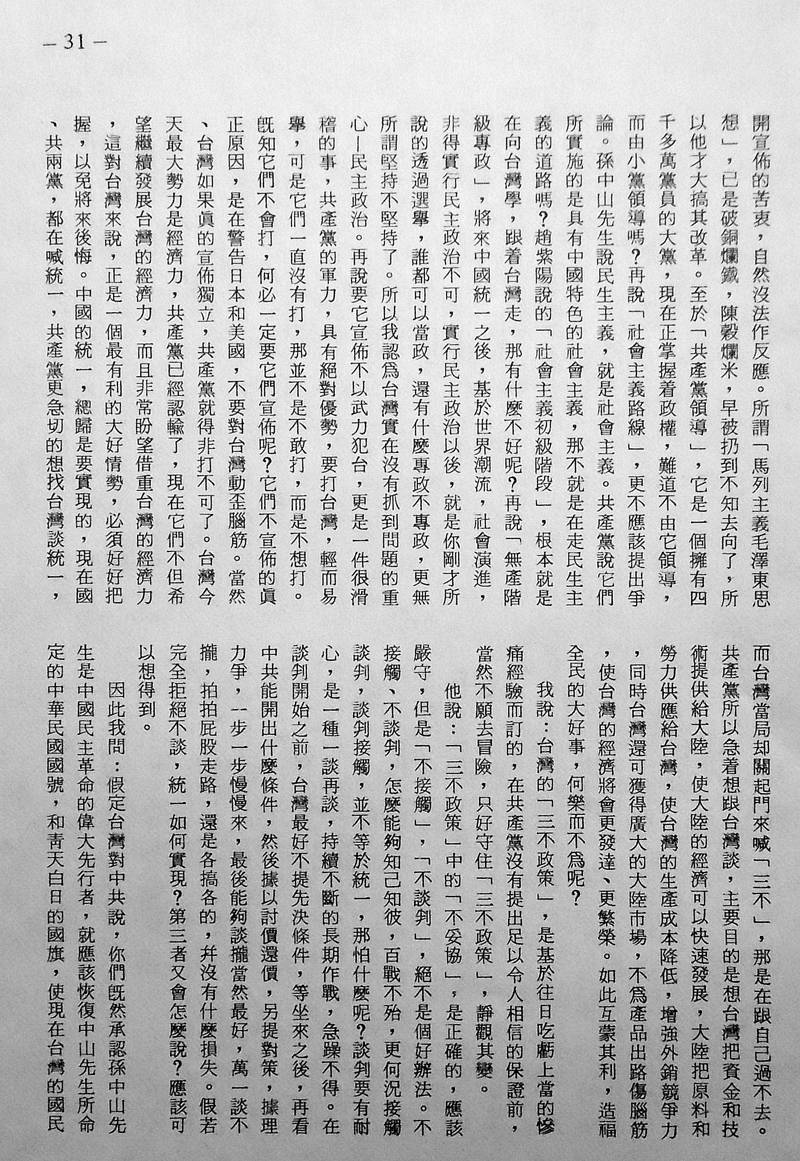 －31－
開宣佈的苦衷，自然沒法作反應。所謂「馬列主義毛澤東思
想」，已是破銅爛鐵，陳穀爛米，早被扔到不知去向了，所
以他才大搞其改革。至於「共產黨領導」，它是一個擁有四
千多萬黨員的大黨，現在正掌握着政權，難道不由它領導，
而由小黨領導嗎？再說「社會主義路線」，更不應該提出爭
論。孫中山先生說民生主義，就是社會主義。共產黨說它們
所實施的是具有中國特色的社會主義，那不就是在走民生主
義的道路嗎？趙紫陽說的「社會主義初級階段」，根本就是
在向台灣學，跟着台灣走，那有什麼不好呢？再說「無產階
級專政」，將來中國統一之後，基於世界潮流，社會演進，
非得實行民主政治不可，實行民主政治以後，就是你剛才所
說的透過選舉，誰都可以當政，還有什麼專政不專政，更無
所謂堅持不堅持了。所以我認為台灣實在沒有抓到問題的重
心—民主政治。再說要它宣佈不以武力犯台，更是一件很滑
稽的事，共產黨的軍力，具有絕對優勢，要打台灣，輕而易
舉，可是它們一直沒有打，那並不是不敢打，而是不想打。
旣知它們不會打，何必一定要它們宣佈呢？它們不宣佈的眞
正原因，是在警告日本和美國，不要對台灣動歪腦筋。當然
、台灣如果眞的宣佈獨立，共產黨就得非打不可了。台灣今
天最大勢力是經濟力，共產黨已經認輸了，現在它們不但希
望繼續發展台灣的經濟力，而且非常盼望借重台灣的經濟力
，這對台灣來說，正是一個最有利的大好情勢，必須好好把
握，以免將來後悔。中國的統一，總歸是要實現的，現在國
、共兩黨，都在喊統一，共產黨更急切的想找台灣談統一，
而台灣當局却關起門來喊「三不」，那是在跟自己過不去。
共產黨所以急着想跟台灣談，主要目的是想台灣把資金和技
術提供給大陸，使大陸的經濟可以快速發展，大陸把原料和
勞力供應給台灣，使台灣的生產成本降低，增強外銷競爭力
，同時台灣還可獲得廣大的大陸市場，不爲產品出路傷腦筋
，使台灣的經濟將會更發達、更繁榮。如此互蒙其利，造福
全民的大好事，何樂而不爲呢？
我說：台灣的「三不政策」，是基於往日吃虧上當的慘
痛經驗而訂的，在共產黨沒有提出足以令人相信的保證前，
當然不願去冒險，只好守住「三不政策」，靜觀其變。
他說：「三不政策」中的「不妥協」，是正確的，應該
嚴守，但是「不接觸」，「不談判」，絕不是個好辦法。不
接觸、不談判，怎麼能夠知己知彼，百戰不殆，更何況接觸
談判，談判接觸，並不等於統一，那怕什麼呢？談判要有耐
心，是一種一談再談，持續不斷的長期作戰，急躁不得。在
談判開始之前，台灣最好不提先決條件，等坐來之後，再看
中共能開出什麼條件，然後據以討價還價，另提對策，據理
力爭，一步一步慢慢來，最後能夠談攏當然最好，萬一談不
攏，拍拍屁股走路，還是各搞各的，幷沒有什麼損失。假若
完全拒絕不談，統一如何實現？第三者又會怎麼說？應該可
以想得到。
因此我問：假定台灣對中共說，你們旣然承認孫中山先
生是中國民主革命的偉大先行者，就應該恢復中山先生所命
定的中華民國國號，和靑天白日的國旗，使現在台灣的國民